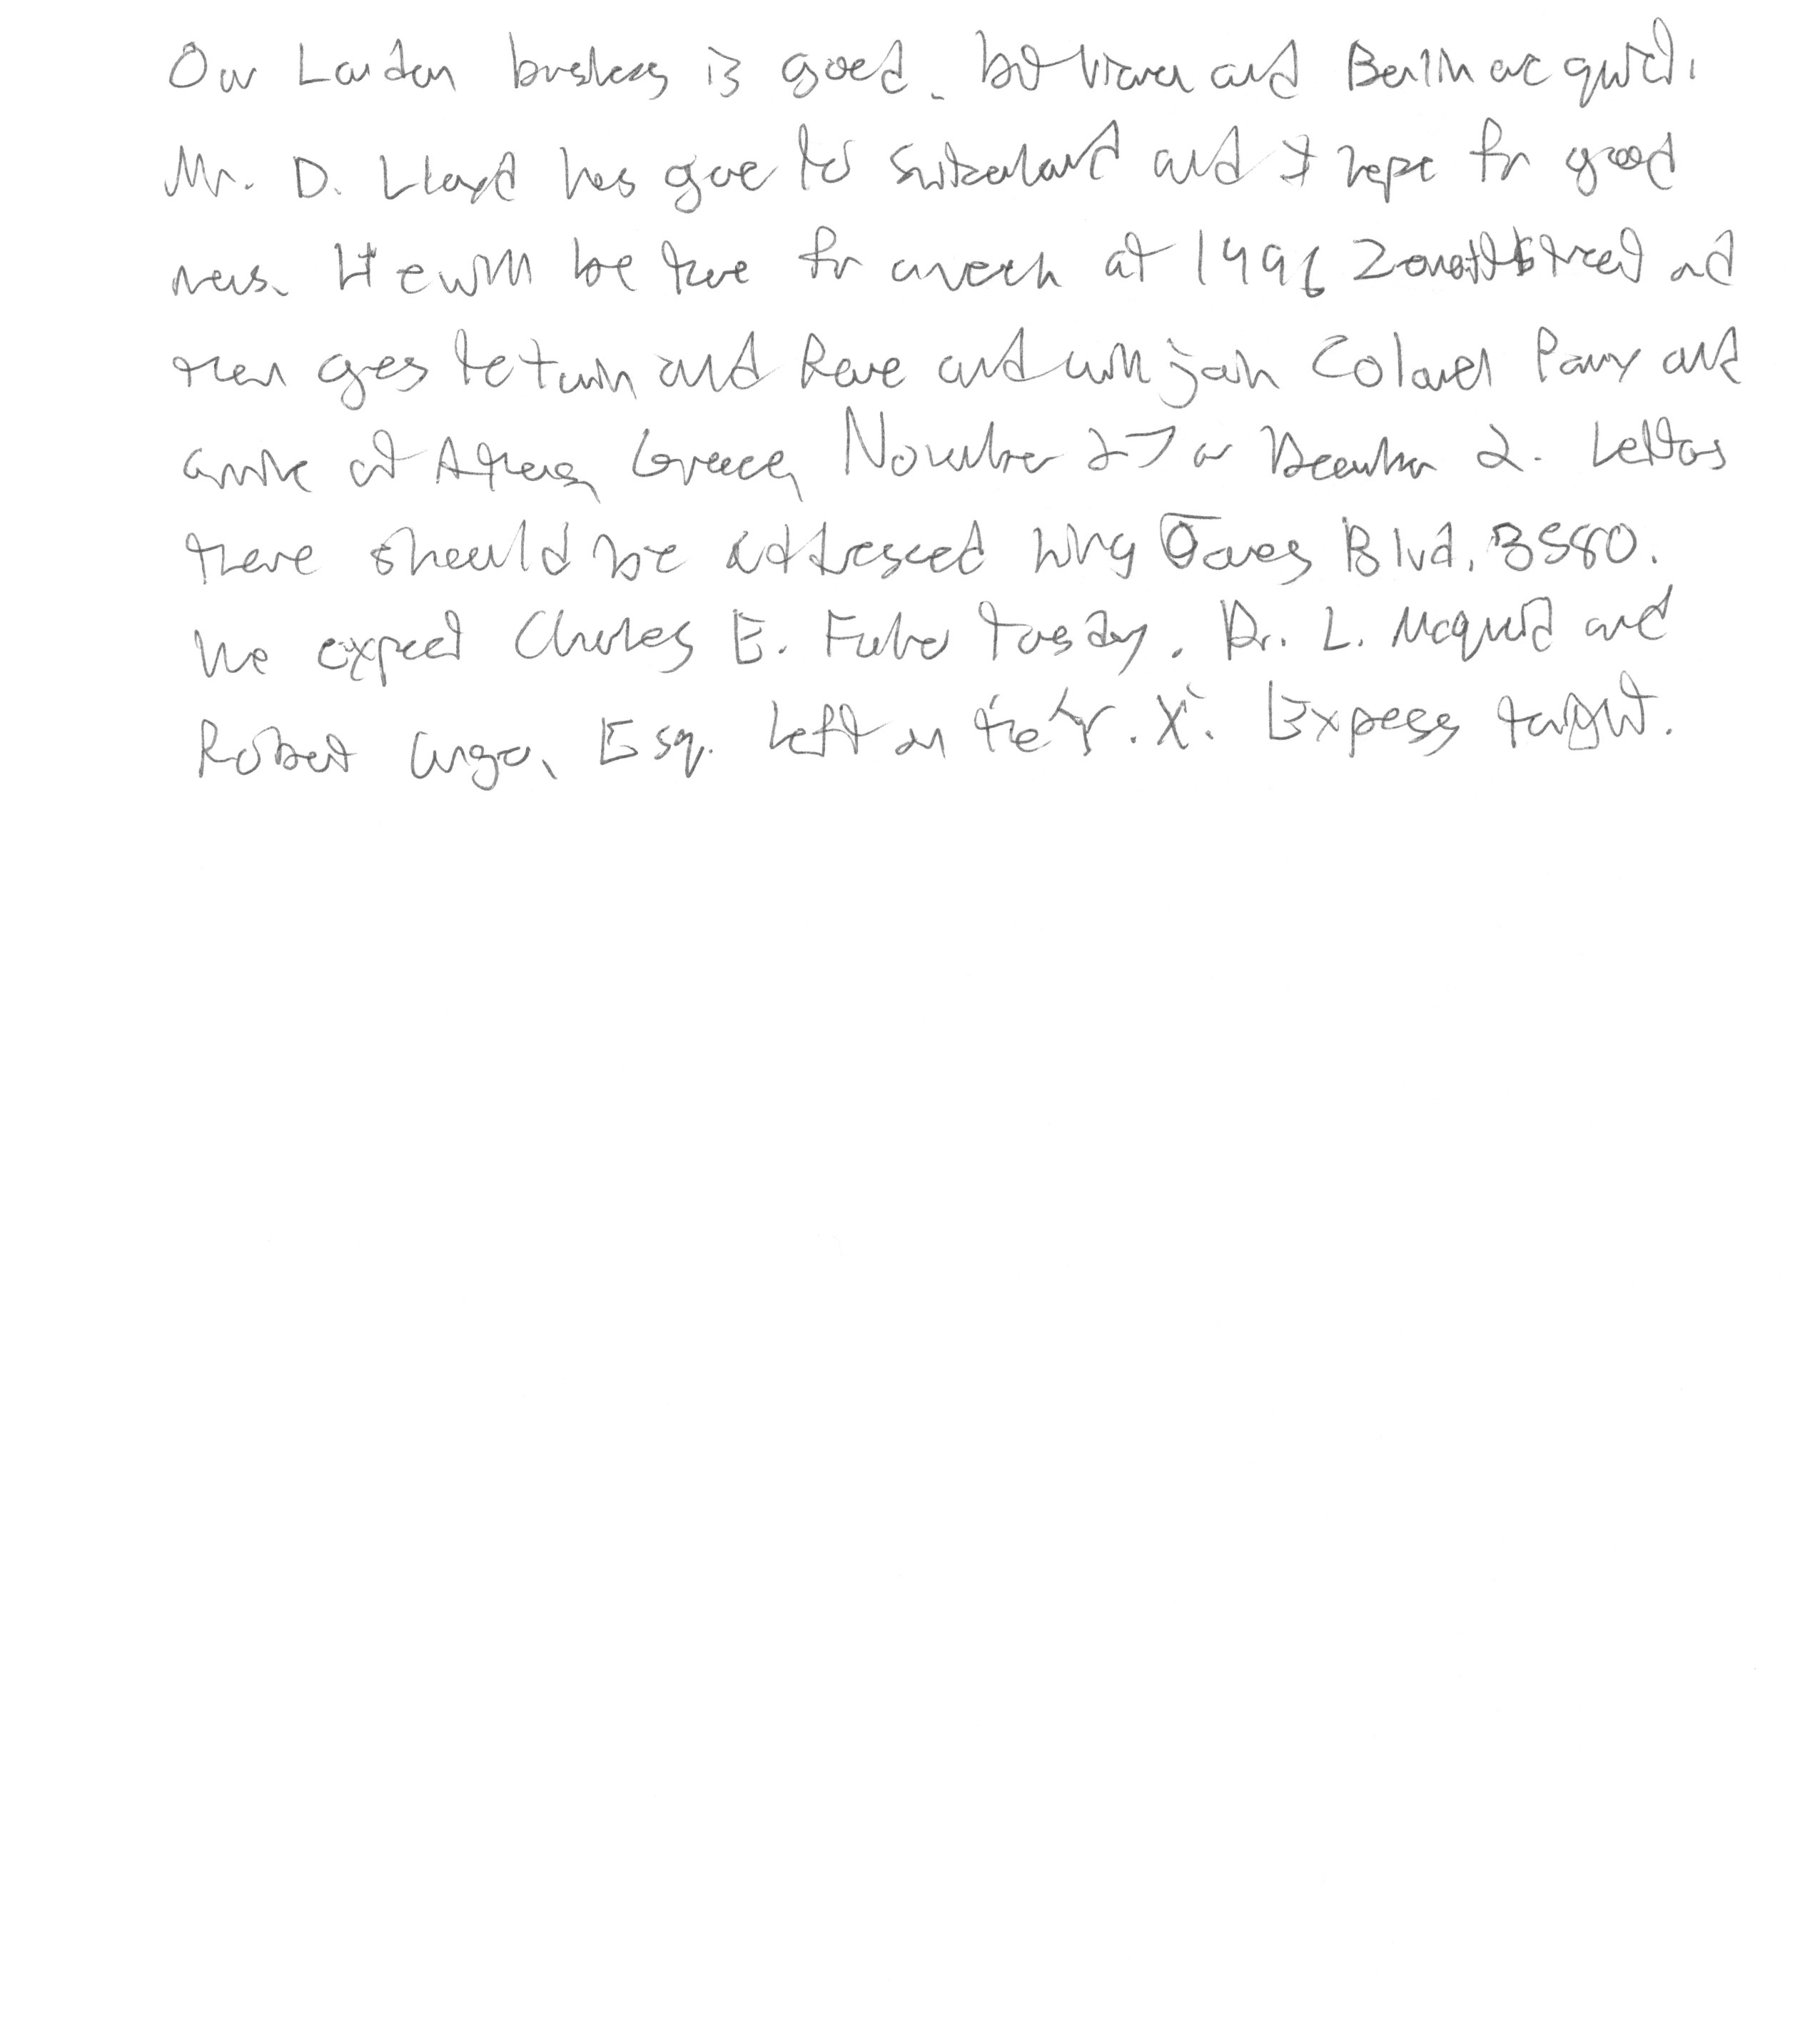 Our London business is good, but Vienna and Berlin are quiet.
Mr. D. Lloyd has gone to Switzerland and I hope for good
news. He will be there for a week at 1496 Zermott Street and
then goes to Turin and Rome and will join Colonel Parry and
arrive at Athens, Greece, November 27 or December 2. Letters
there should be addressed King James Blvd. 3580.
We expect Charles E. Fuller Tuesday. Dr. L. McQuaid and
Robert Unger, Esq. left on the Y. X. Express tonight.